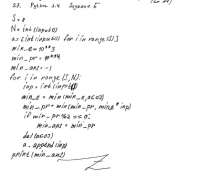 23. Python 3.4
S = 8
N = int(input())
a = [int(input()) for i in range(S)]
min_a = 10**3
min_pr =
min_ans = -1
for i in range(S, N):
inp = int(input())
min_a = min(min_a, a[0])
min_pr = min(min_pr, min_a * inp)
if min_pr % 2 == 0:
min_ans = min_pr
del(a[0])
a.append(inp)
print(min_ans)